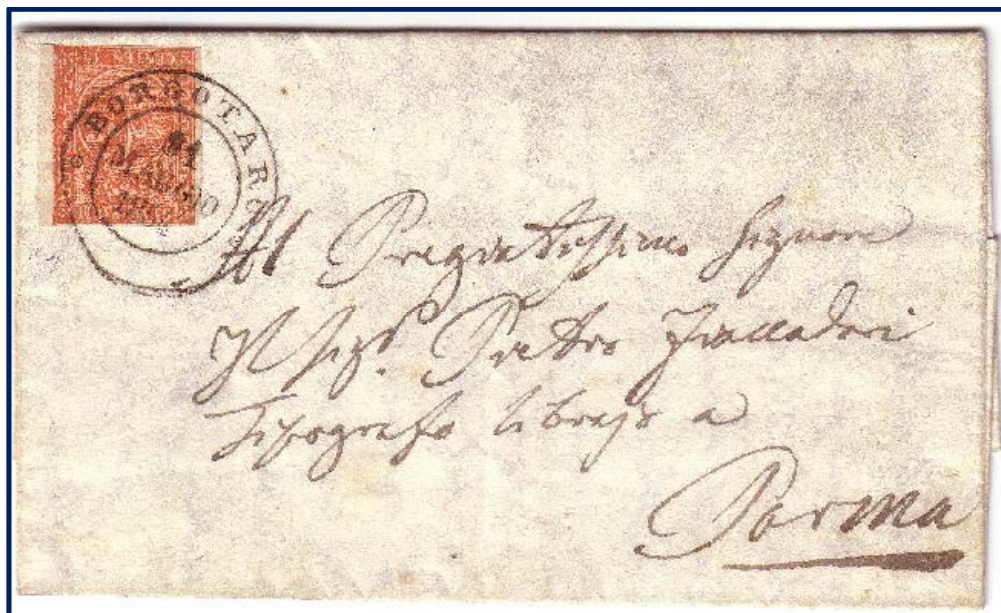 BORGOTARO
31
MAGGIO
Al Pregiatissimo Signore
Il Sigr. Pietro Fiaccadori
Tipografo Librajo a
Parma